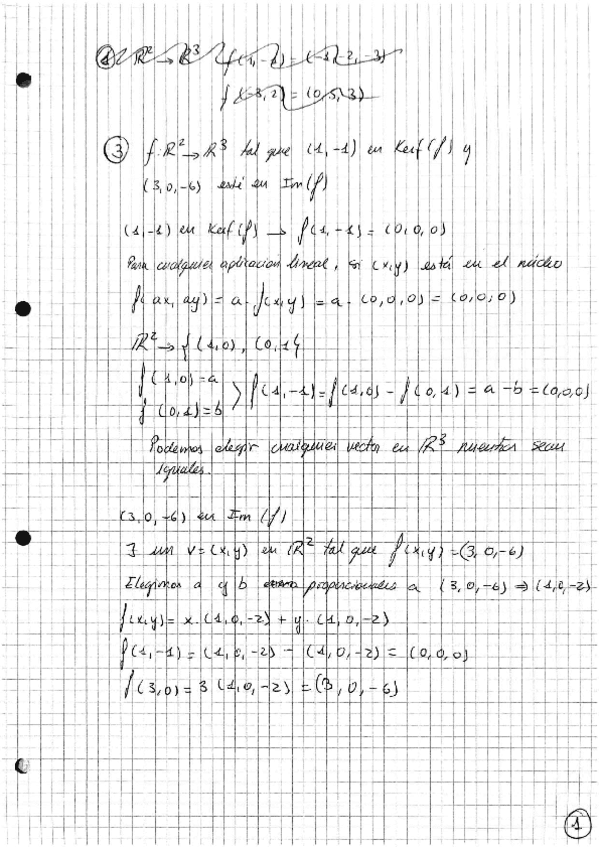 ① R² → R³ f(1,-1) = (-1,-2,-3)
f(-3,2) = (0,5,3)
③ f: R² → R³ tal que (1,-1) en Kerf(f) y
(3,0,-6) esté en Im(f)
(1,-1) en Kerf(f) → f(1,-1) = (0,0,0)
Para cualquier aplicación lineal, si (x,y) está en el núcleo
f(ax, ay) = a · f(x,y) = a · (0,0,0) = (0,0,0)
R² → {(1,0), (0,1)}
f(1,0) = a
f(0,1) = b
> f(1,-1) = f(1,0) - f(0,1) = a - b = (0,0,0)
Podemos elegir cualquier vector en R³ mientras sean
iguales.
(3,0,-6) en Im(f)
∃ un v = (x,y) en R² tal que f(x,y) = (3,0,-6)
Elegimos a y b proporcionales a (3,0,-6) ⇒ (1,0,-2)
f(x,y) = x · (1,0,-2) + y · (1,0,-2)
f(1,-1) = (1,0,-2) - (1,0,-2) = (0,0,0)
f(3,0) = 3 (1,0,-2) = (3,0,-6)
1